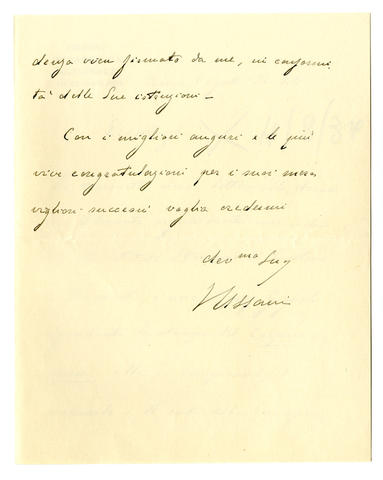 denza vien firmato da me, in conformi
tà delle Sue istruzioni -
Con i migliori auguri e le più
vive congratulazioni per i suoi mera
vigliosi successi voglia credermi
dev mo Suo